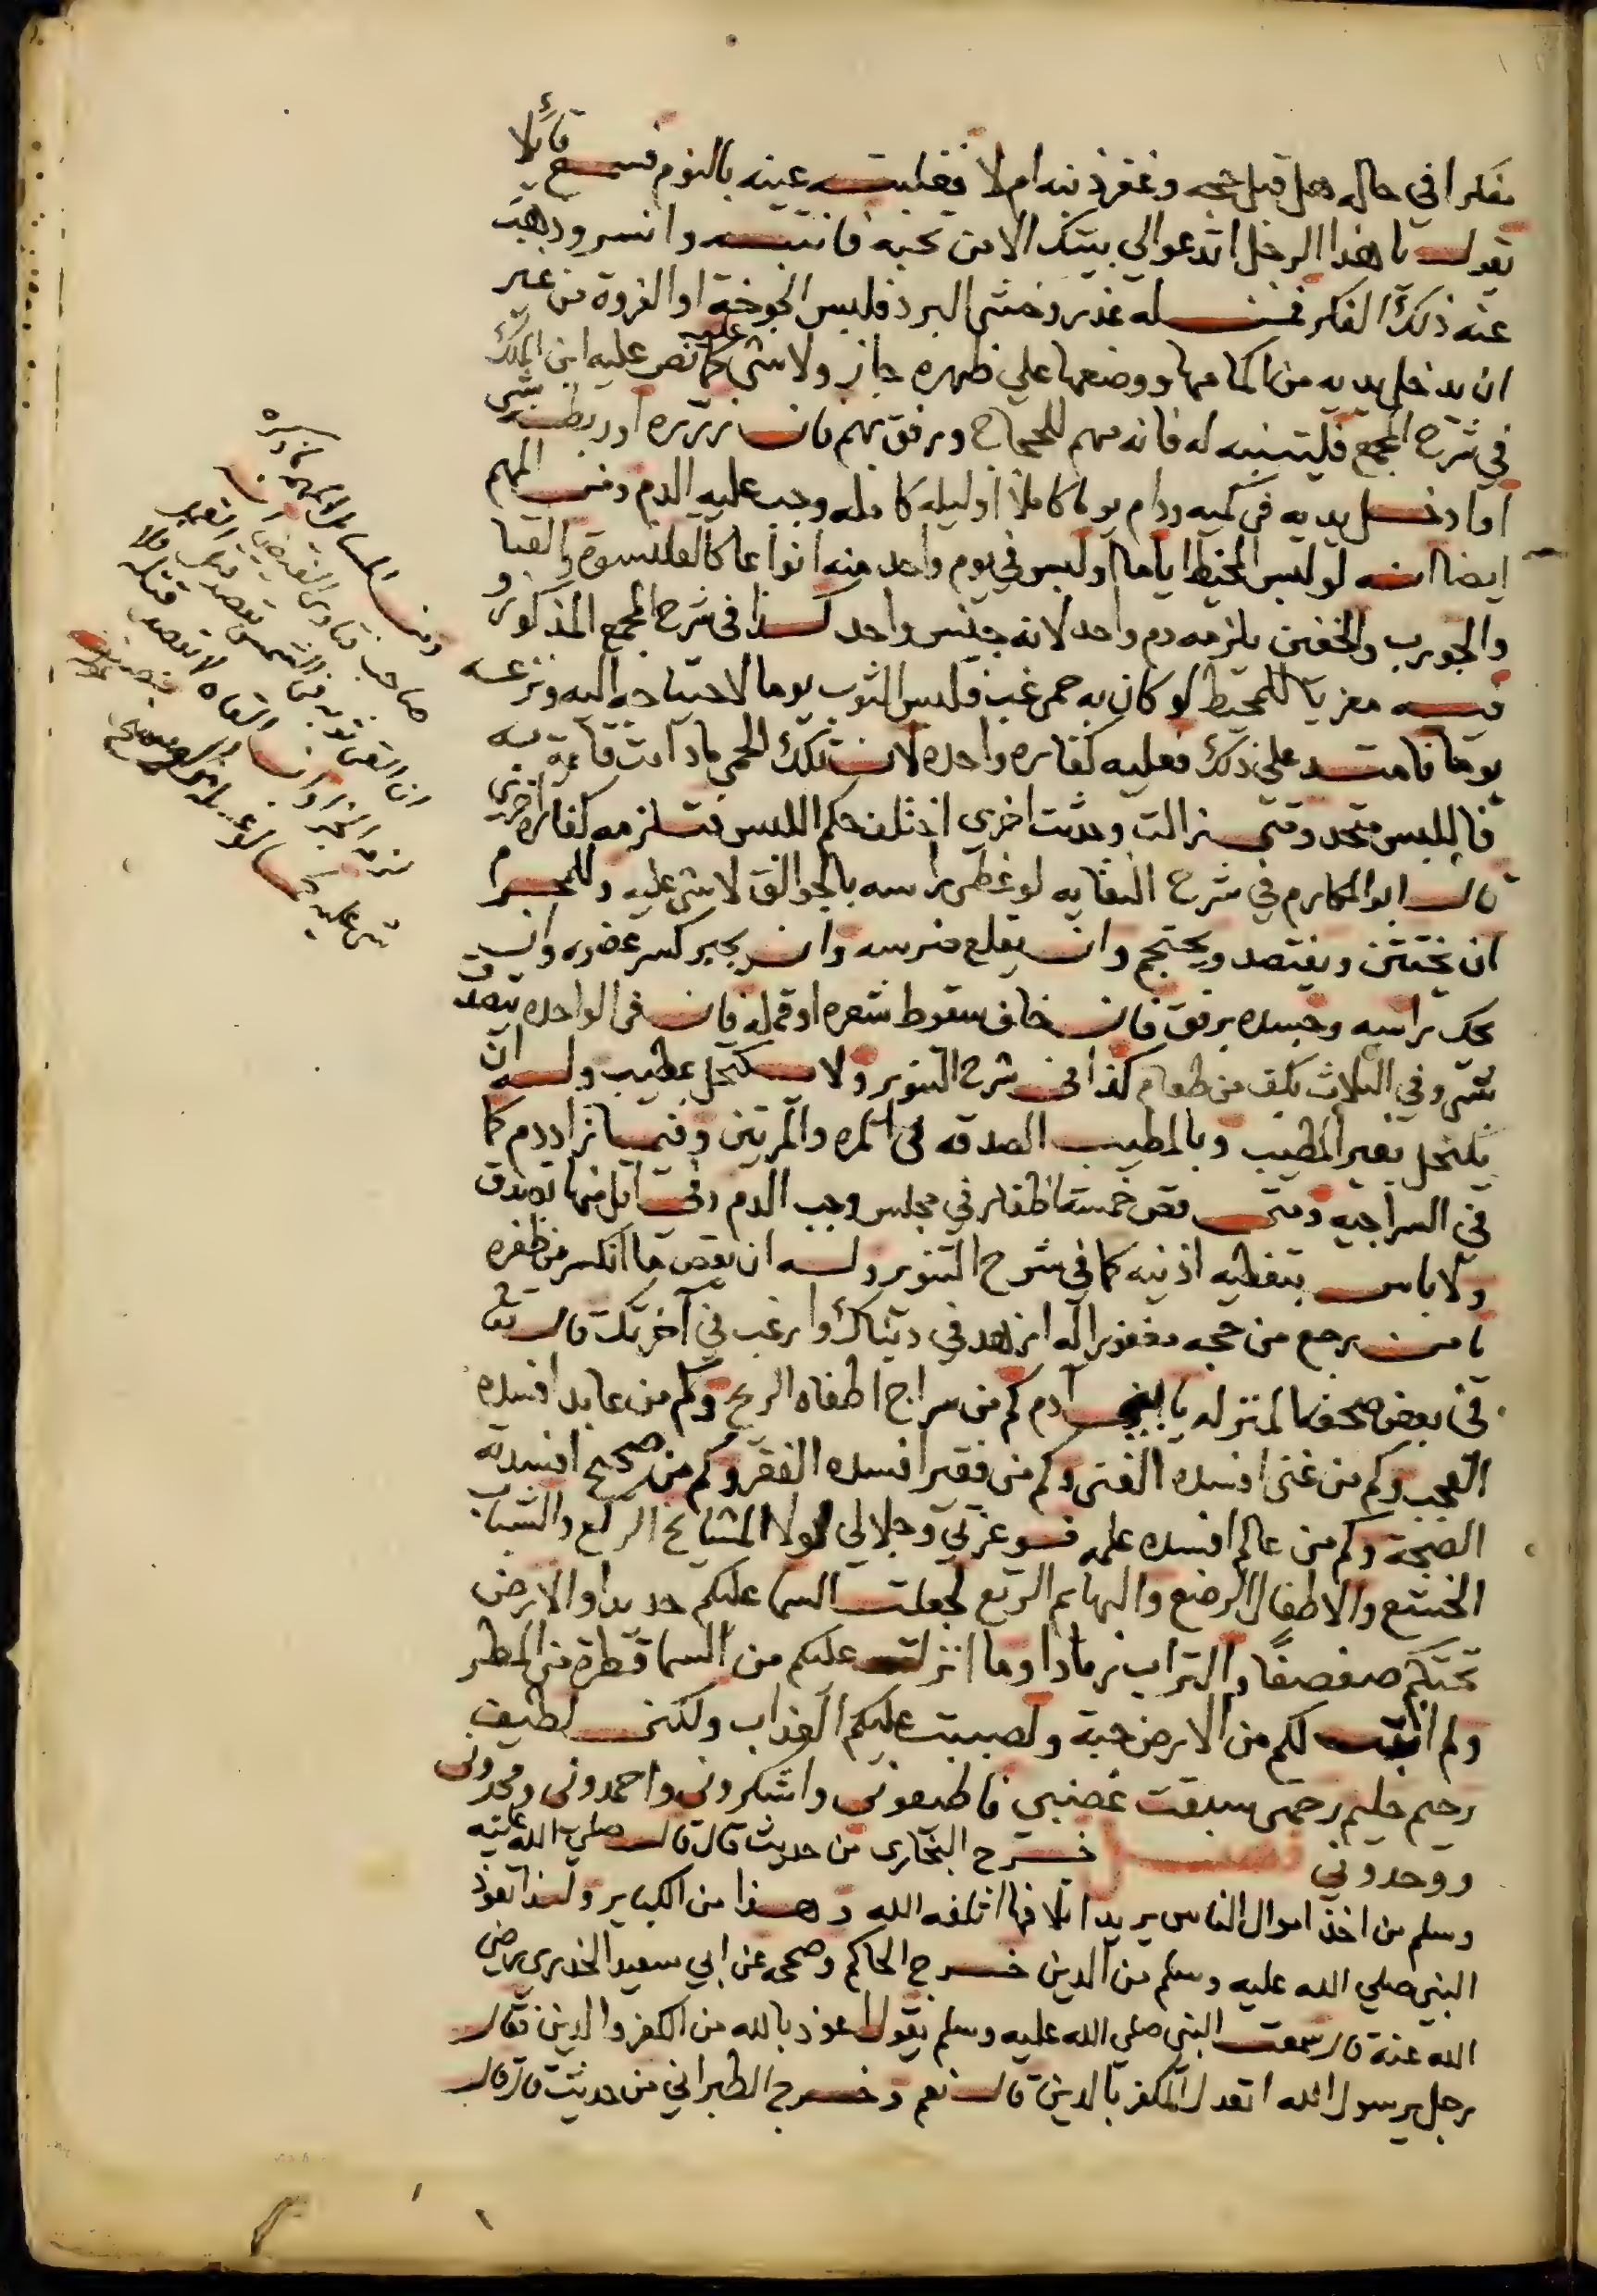 مفكرا في حاله هل قبل حجه وغفر ذنبه ام لا فغلبته عينه بالنوم فسمع قائلا
يقول يا هذا الرجل اتدعو الي بيتك الا من تحبه فانتبه وانسر وذهب
عنه ذلك الفكر فمن له عذر وخشي البرد فلبس الجوخة او الفروة من غير
ان يدخل يديه من اكمامها ووضعها علي ظهره جاز ولا شي عليه كما نص عليه ابن الملك
في شرح المجمع فليتنبه له فانه مهم للحجاج ورفق بهم فان زرره او ربطه بشي
او ادخل يديه في كميه ودام يوما كاملا او ليله كامله وجب عليه الدم ومن المهم
ايضا انه لو لبس المخيط اياما او لبس في يوم واحد منه انواعا كالقلنسوة والقبا
والجورب والخفين يلزمه دم واحد لانه جنس واحد كذا في شرح المجمع المذكور و
فيه معزيا للمحيط لو كان به حمي غب فلبس الثوب يوما لاحتياجه اليه ونزعه
يوما فامتد علي ذلك فعليه كفارة واحده لان تلك الحمي مادامت قائمة به
فاللبس متحد ومتي زالت وحدثت اخري اختلف حكم اللبس فتلزمه كفارة اخري
قال ابو المكارم في شرح النقايه لو غطي راسه بالجوالق لا شي عليه وللمحرم
ان يختتن ويفتصد ويحتجم وان يقلع ضرسه وان يجبر كسر عضوه وان
يحك راسه وجسده برفق فان خاف سقوط شعره او قمله فان في الواحده يتصدق
بشي وفي الثلاث بكف من طعام كذا في شرح التنوير ولا يكتحل بمطيب وله ان
يكتحل بغير المطيب وبالمطيب الصدقه في المره والمرتين وفيما زاد دم كما
في السراجيه ومتي قص خمسة اظفار في مجلس وجب الدم وفي اقل منها تصدق
ولا باس بتغطيه اذنيه كما في شرح التنوير وله ان يقص ما انكسر من ظفره
يا من يرجع من حجه مغفورا له ازهد في دنياك وارغب في آخرتك قال تعا
في بعض صحفه المنزله يا ابن آدم كم من سراج اطفاه الريح وكم من عابد افسده
العجب وكم من غني افسده الغني وكم من فقير افسده الفقر وكم من صحيح افسدته
الصحة وكم من عالم افسده علمه فوعزتي وجلالي لولا المشائخ الركع والشباب
الخشع والاطفال الرضع والبهائم الرتع لجعلت السما عليكم حديدا والارض
تحتكم صفصفًا والتراب رمادا وما انزلت عليكم من السما قطرة من المطر
ولم انبت لكم من الارض حبة ولصببت عليكم العذاب ولكني لطيف
رحيم حليم رحمتي سبقت غضبي فاطيعوني واشكروني واحمدوني ومجدوني
ووحدوني فصل خرج البخاري من حديث قال قال صلي الله عليه
وسلم من اخذ اموال الناس يريد اتلافها اتلفه الله وهذا من الكباير ولهذا تعوذ
النبي صلي الله عليه وسلم من الدين خرج الحاكم وصححه عن ابي سعيد الخدري رضي
الله عنه قال سمعت النبي صلي الله عليه وسلم يقول اعوذ بالله من الكفر والدين فقال
رجل يرسول الله اتعدل الكفر بالدين قال نعم وخرج الطبراني من حديث قال قال
ومن المسائل المهمه ما ذكره
صاحب فتاوي
ان القي ثوبه في الشمس بقصد قتل القمل
لزمه الجزا وان القاه لا بقصد قتله